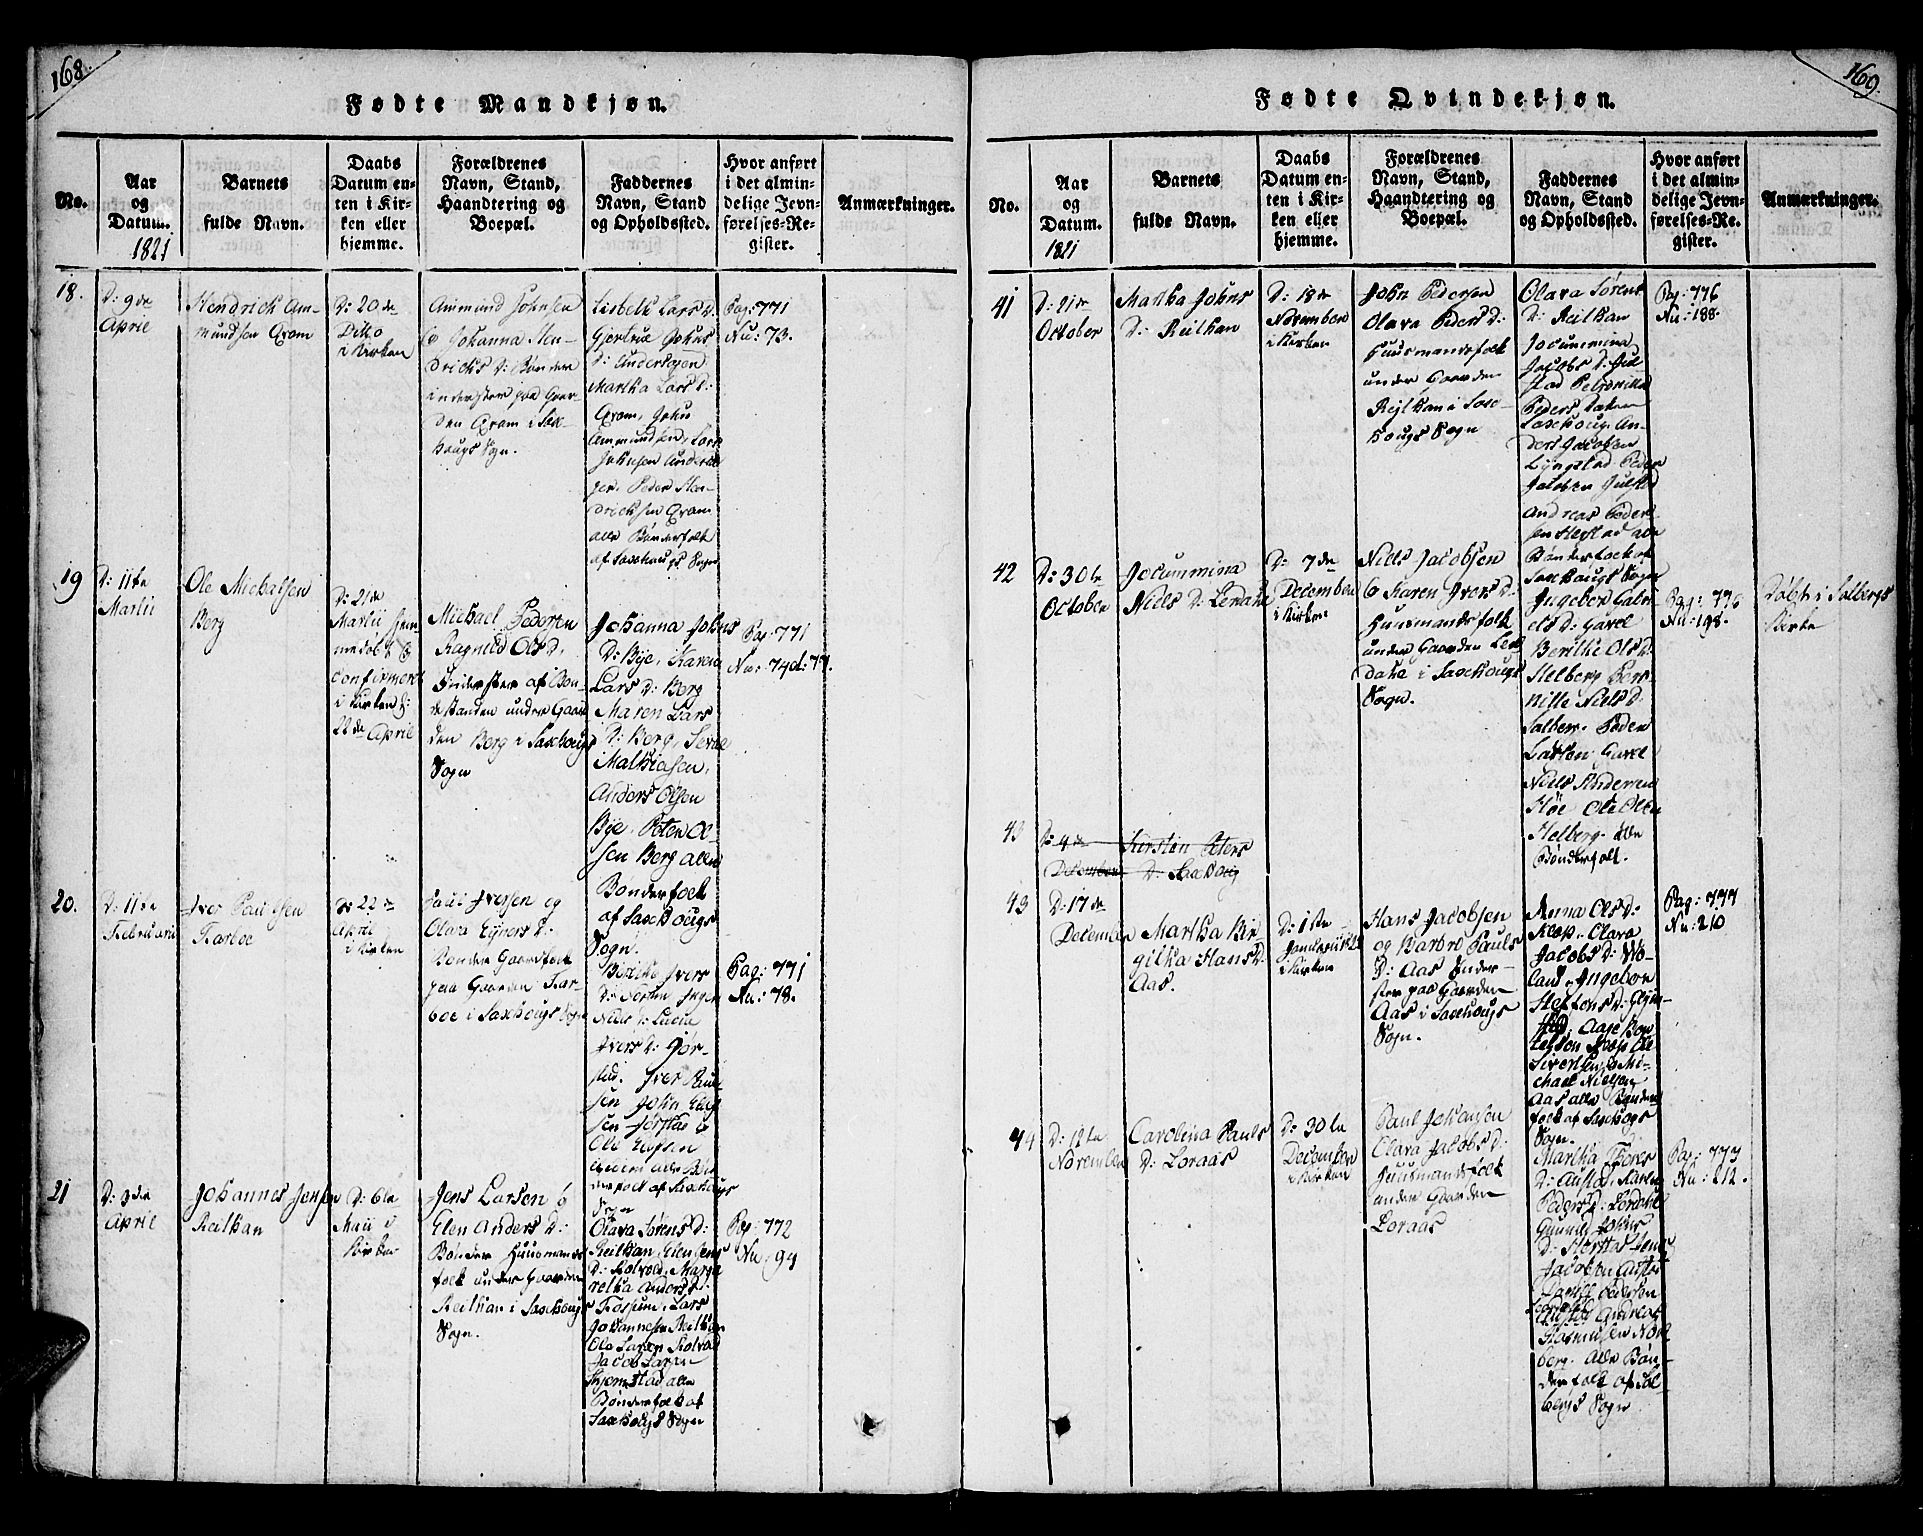 168.
Fødte Mandkjøn.
No.
Aar
og
Datum.
1821
Barnets
fulde Navn.
Daabs
Datum en-
ten i Kir-
ken eller
hjemme.
Forældrenes
Navn, Stand,
Haandtering og
Boepæl.
Faddernes
Navn, Stand
og Opholdssted.
Hvor anført
i det almin-
delige Jevn-
førelses-Re-
gister.
Anmærkninger.
18.
D: 9de
April
Hendrich Am-
mundsen Qvam
D: 20de
Dito
i Kirken
Ammund Johnsen
& Johanna Hen-
drichs D: Bønder
inderster paa Gaar-
den Qvam i Sax-
hougs Sogn.
Lisbeth Lars D:
Gjertrue Johns
D:
Martha Lars D:
Qvam, John
Ammundsen, Lars
Johnsen
Peder Hen-
drichsen Qvam
alle Bønderfolk
af Saxhougs Sogn
Pag: 771
Nu: 73.
19
D: 11te
Martii
Ole Michalsen
Berg
D: 21de
Martii hjem-
medøbt &
confirmeret
i Kirken d:
22de April
Michael Pedersen
Ragnild Ols D.
Inderster af Bon-
destanden under Gaar-
den Berg i Saxhougs
Sogn
Johanna Johns
D: Bye, Karen
Lars D: Berg
Maren Lars
D: Berg,
Mathiasen,
Anders Olsen
Bye, Peter Ol-
sen Berg alle
Bønderfolk
af Saxhougs
Sogn.
Pag: 771
Nu: 74 d: 77.
20.
D: 11te
Februarii
Iver Paulsen
Tarboe
D: 22de
April
i Kirken
Paul Iversen og
Olava Ejvers D:
Bønder Gaardfolk
paa Gaarden Tar-
boe i Saxhougs Sogn
Berithe Ivers
D:
Niels D: Lucia
Ivers D: Jør-
stad. Iver Paul-
sen John
sen Jørstad &
Ole
alle Bøn-
derfolk af Saxhougs
Sogn
Pag: 771
Nu: 78.
21
D: 9de
April
Johannes Jensen
Reithan
D: 6te
Maii i
Kirken
Jens Larsen &
Elen Anders D:
Bønder Huusmands
folk under Gaarden
Reithan i Saxhougs
Sogn.
Olava Sørens D:
Reithan, Elen Jens
D: Kolvold, Marga
retha Anders D:
Lars
Johannesen Reithan
Ole Larsen Kolvold
Jacob Larsen
Skjemstad alle
Bønderfolk af
Saxhougs Sogn
Pag: 772
Nu: 94
169.
Fødte Qvindekjøn.
No.
Aar
og
Datum.
1821
Barnets
fulde Navn.
Daabs
Datum en-
ten i Kir-
ken eller
hjemme.
Forældrenes
Navn, Stand,
Haandtering og
Boepæl.
Faddernes
Navn, Stand
og Opholdssted.
Hvor anført
i det almin-
delige Jevn-
førelses-Re-
gister.
Anmærkninger.
41
D: 21de
October
Martha Johns
D: Reithan
D: 18de
November
i Kirken
John Pedersen
Olava Peders D:
Huusmandsfolk
under Gaarden
Rejthan i Saxe-
hougs Sogn
Olava Sørens
D: Reithan
Jocummina
Jacobs D: Jul-
stad Petronille
Peders Datter
Saxhoug, An-
ders Jacobsen
Lÿngstad Peder
Jacobsen Julstad
Andreas Peder-
sen Hegstad alle
Bønderfolk af
Saxhougs Sogn
Pag: 776
Nu: 188.
42
D: 30te
October
Jocummina
Niels D: Lendahl
D: 7de
December
i Kirken
Niels Jacobsen
& Karen Ivers D:
Huusmandsfolk
under Gaarden Len-
dahl i Saxehougs
Sogn.
Ingebor Gabri-
els D: Gavel
Berithe Ols D:
Helberg Per-
nille Niels D:
Salberg. Peder
Larsen Gavel
Niels Andersen
Høe Ole Olsen
Helberg. alle
Bønderfolk.
Pag: 776
Nu: 198.
Døbt i Salbergs
Kirke
43
D: 4de
December
Kirsten Peters
D: Saxhoug
43
D: 17de
December
Martha Bir
githa Hans D:
Aas.
D: 1ste
i Kirken
Hans Jacobsen
og Barbro Pauls
D: Aas Inder-
ster paa Gaarden
Aas i Saxhougs
Sogn.
Anna Ols D:
Klæp, Olava
Jacobs D: Wo-
land, Ingebor
D:
Aage Bor
telsen Klæp Ole
Sivertsen, & Mi-
chael Nielsen
Aas alle Bønder
folk af Saxhougs
Sogn.
Pag: 777
Nu: 210
44
D: 12te
November
Carolina Pauls
D: Loraas
D: 30te
December
i Kirken
Paul Johansen
Olava Jacobs D:
Huusmandsfolk
under Gaarden
Loraas
Martha Thores
D: Austad, Karen
Peders D: Lordahl
Gunild Johns
D: Jens
Jacobsen Austad
Pedersen
Andreas
Rasmusen Nord
berg. alle Bøn-
derfolk af Sal-
bergs Sogn
Pag: 777
Nu: 212.